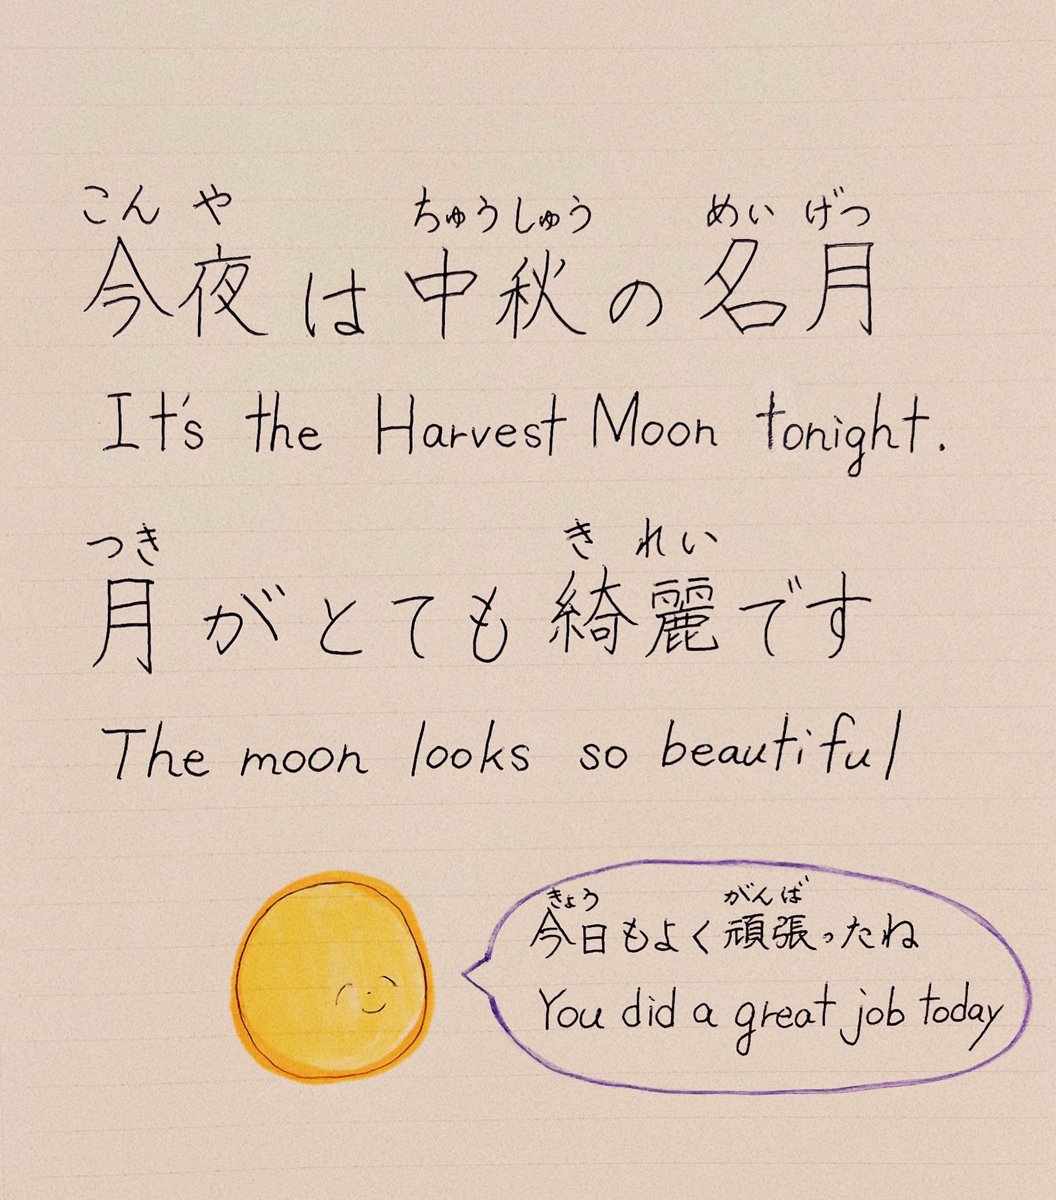 こんや ちゅうしゅう めいげつ
今夜は中秋の名月
It's the Harvest Moon tonight.
つき きれい
月がとても綺麗です
The moon looks so beautiful
きょう がんば
今日もよく頑張ったね
You did a great job today